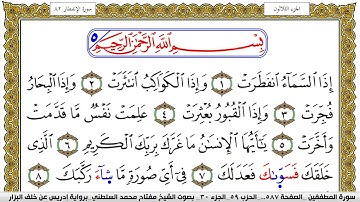 الجزء الثلاثون
سورة الإنفطار ٨٢
بِسْمِ اللَّهِ الرَّحْمَٰنِ الرَّحِيمِ
إِذَا السَّمَآءُ انفَطَرَتْ ١ وَإِذَا الْكَوَاكِبُ انتَثَرَتْ ٢ وَإِذَا الْبِحَارُ
فُجِّرَتْ ٣ وَإِذَا الْقُبُورُ بُعْثِرَتْ ٤ عَلِمَتْ نَفْسٌ مَّا قَدَّمَتْ
وَأَخَّرَتْ ٥ يَٰٓأَيُّهَا الْإِنسَٰنُ مَا غَرَّكَ بِرَبِّكَ الْكَرِيمِ ٦ الَّذِى
خَلَقَكَ فَسَوَّىٰكَ فَعَدَلَكَ ٧ فِىٓ أَىِّ صُورَةٍ مَّا شَآءَ رَكَّبَكَ ٨
سورة المطففين - الصفحة ٥٨٧ - الحزب ٥٩ - الجزء ٣٠ - بصوت الشيخ مفتاح محمد السلطني - برواية إدريس عن خلف البزار